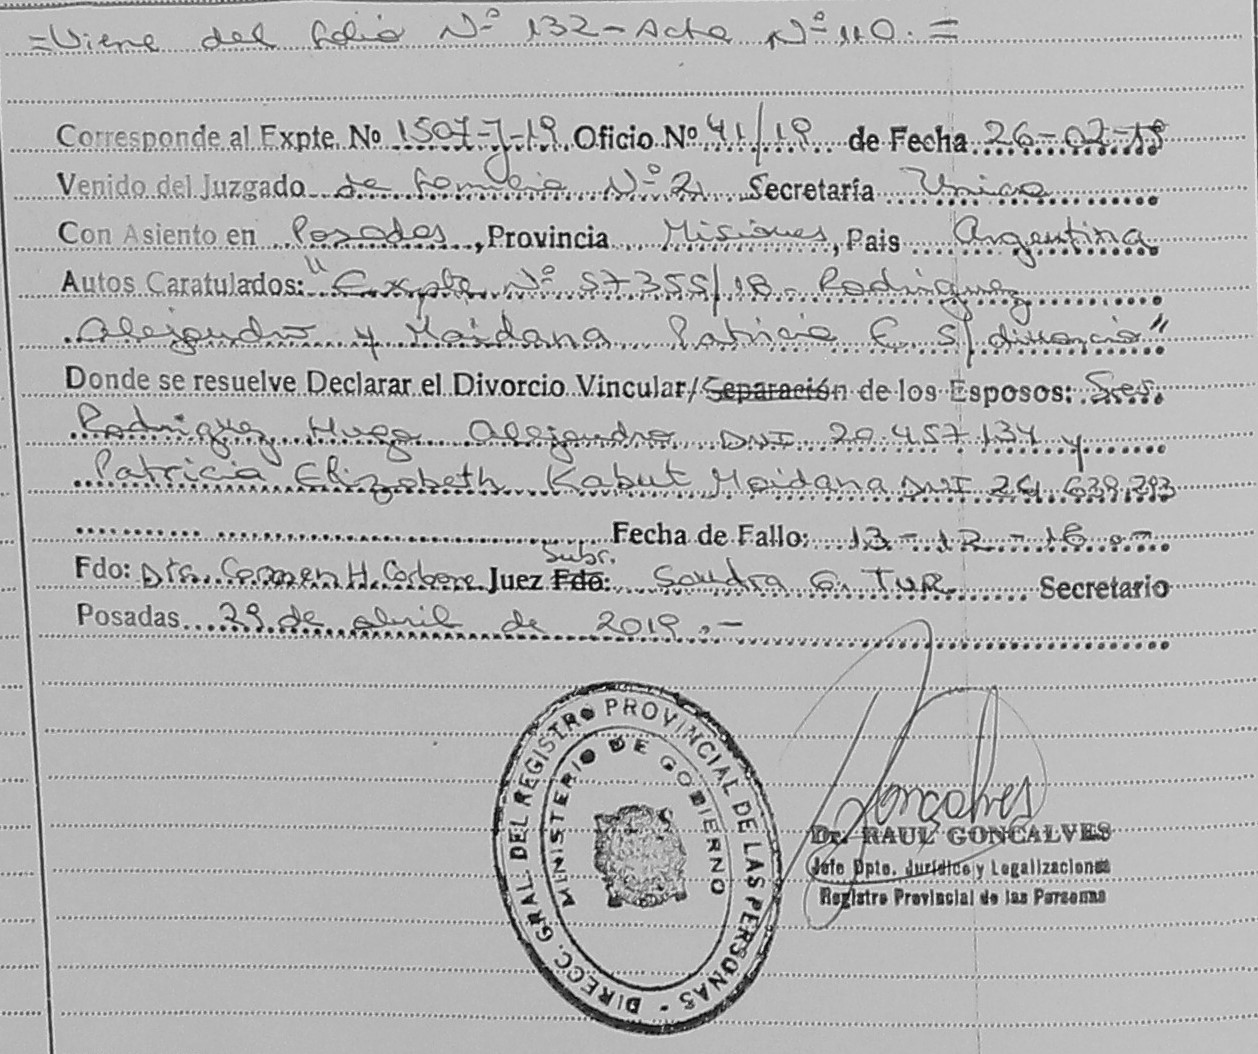 =Viene del folio Nº 132-Acta Nº 110.=
Corresponde al Expte. Nº 1507-J-19 Oficio Nº 41/19 de Fecha 26-02-19
Venido del Juzgado de Familia Nº 2 Secretaría Unica
Con Asiento en Posadas, Provincia Misiones, Pais Argentina
Autos Caratulados: "Expte Nº 57355/18- Rodriguez
Alejandro y Maidana Patricia E. S/ divorcio"
Donde se resuelve Declarar el Divorcio Vincular/Separación de los Esposos: Sres.
Rodriguez Hugo Alejandro DNI 20.457.134 y
Patricia Elizabeth Kabut Maidana DNI 24.639.293
Fecha de Fallo: 13-12-18.-
Subr.
Fdo: Dra. Carmen H. Carbone Juez Fdo: Sandra G. TUR Secretario
Posadas 29 de abril de 2019.-
DIRECC. GRAL. DEL REGISTRO PROVINCIAL DE LAS PERSONAS -
MINISTERIO DE GOBIERNO
Gonçalves
Dr. RAUL GONCALVES
Jefe Dpto. Jurídico y Legalizaciones
Registro Provincial de las Personas